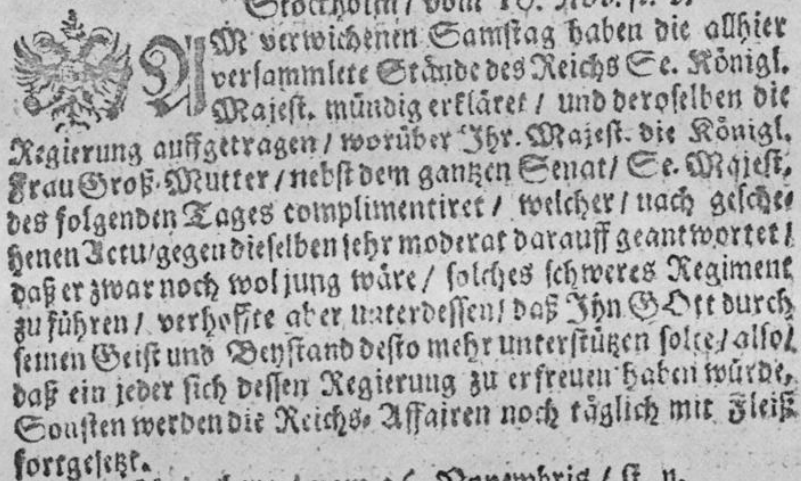 Stockholm / vom 18. Nov. st. v.
AM verwichenen Samstag haben die allhier
versammlete Stände des Reichs Se. Königl.
Majest. mündig erkläret / und deroselben die
Regierung auffgetragen / worüber Ihr. Majest. die Königl.
Frau Groß-Mutter / nebst dem gantzen Senat / Se. Majest.
des folgenden Tages complimentiret / welcher / nach gesche-
henen Actu / gegen dieselben sehr moderat darauff geantwortet /
daß er zwar noch wol jung wäre / solches schweres Regiment
zu führen / verhoffte aber unterdessen / daß Ihn GOtt durch
seinen Geist und Beystand desto mehr unterstützen solte / also /
daß ein jeder sich dessen Regierung zu erfreuen haben würde.
Sonsten werden die Reichs-Affairen noch täglich mit Fleiß
fortgesetzt.
Novembris / st. n.